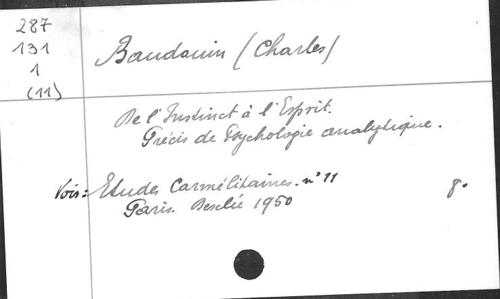 287
131
1
(11)
Baudouin (Charles)
De l'Instinct à l'Esprit.
Précis de Psychologie analytique.
Voir: Etudes Carmélitaines. n° 11
Paris. Desclée 1950
8°